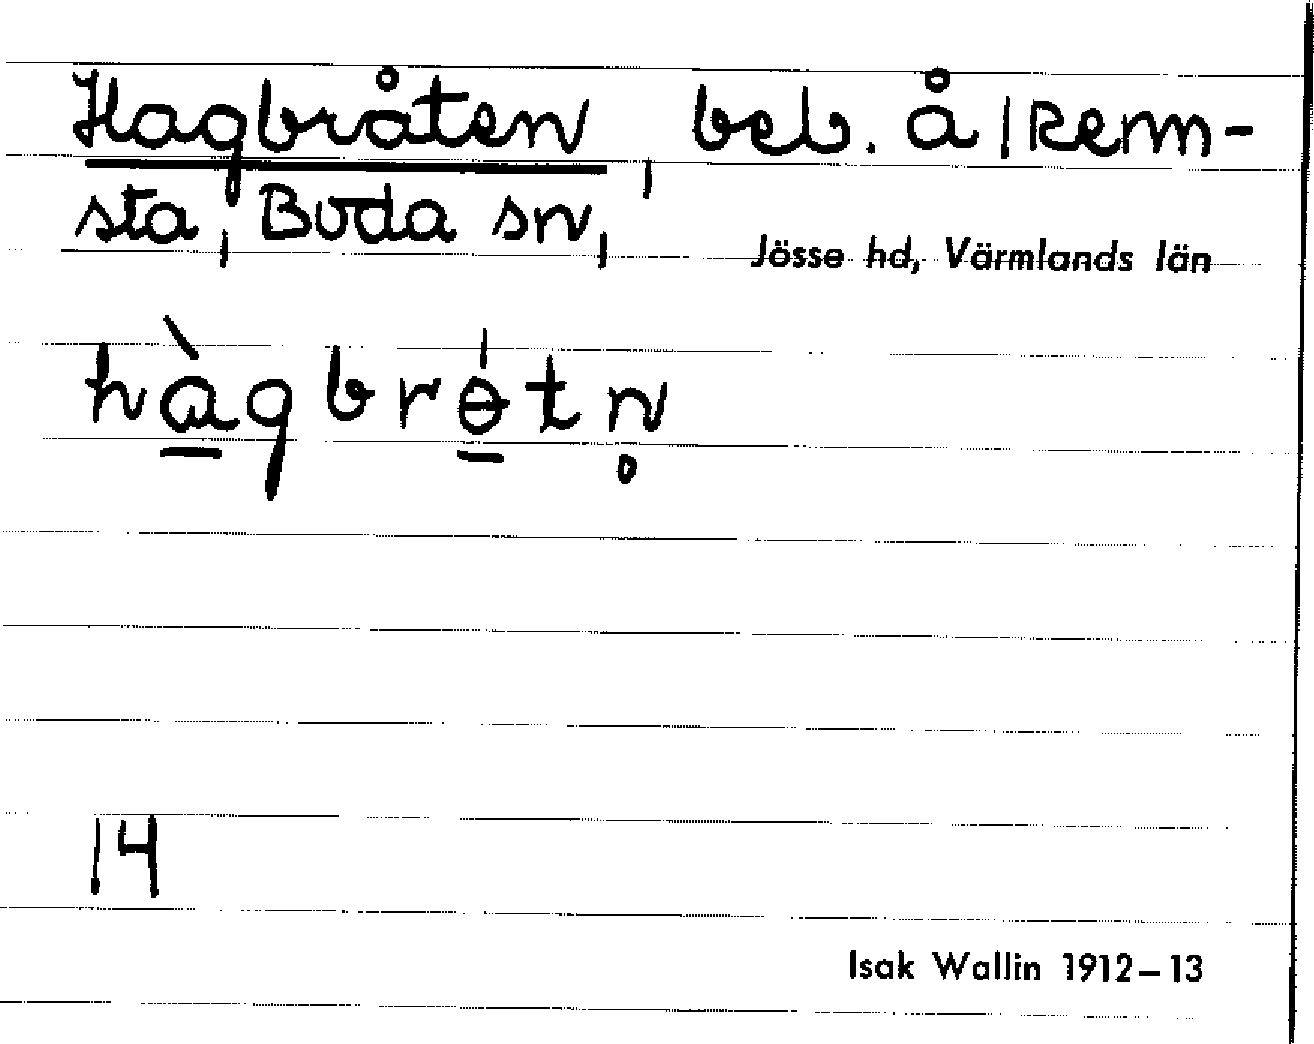 Hagbråten, beb. å 1 Rem-
sta, Boda sn,
Jösse hd, Värmlands län
hàgbrɵ́tn̥
14
Isak Wallin 1912–13